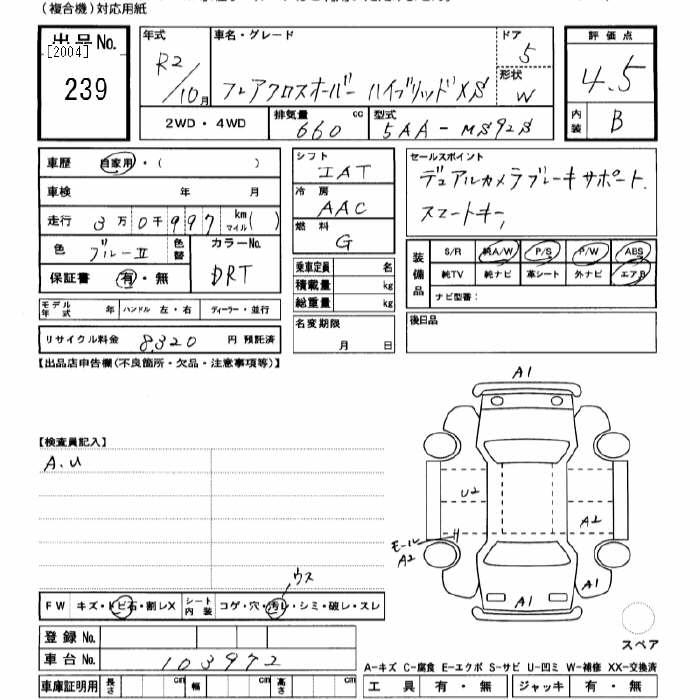 (複合機)対応用紙
出品No.
[2004]
239
年式 R2/10月
車名・グレード フレアクロスオーバー ハイブリッドXS
ドア 5
形状 W
評価点 4.5
内装 B
2WD・4WD
排気量 660 cc
型式 5AA-MS92S
車歴 自家用・( )
車検 年 月
走行 3万0千997 km マイル( )
色 ブルーⅡ 色替
カラーNo. DRT
保証書 有・無
モデル年式 年 ハンドル 左・右 ディーラー・並行
リサイクル料金 8,320 円 預託済
シフト IAT
冷房 AAC
燃料 G
乗車定員 名
積載量 kg
総重量 kg
名変期限 月 日
セールスポイント
デュアルカメラブレーキサポート.
スマートキー,
装備品 S/R 純A/W P/S P/W ABS
純TV 純ナビ 革シート 外ナビ エアB
ナビ型番:
後日品
【出品店申告欄(不良箇所・欠品・注意事項等)】
【検査員記入】
A.U
A1
U2
A2
モール A2
A1
A1
スペア
ウス
FW キズ・トビ石・割レX シート内装 コゲ・穴・汚レ・シミ・破レ・スレ
登録No.
車台No. 103972
車庫証明用 長さ cm 幅 cm 高さ cm
A-キズ C-腐食 E-エクボ S-サビ U-凹ミ W-補修 XX-交換済
工具 有・無 ジャッキ 有・無